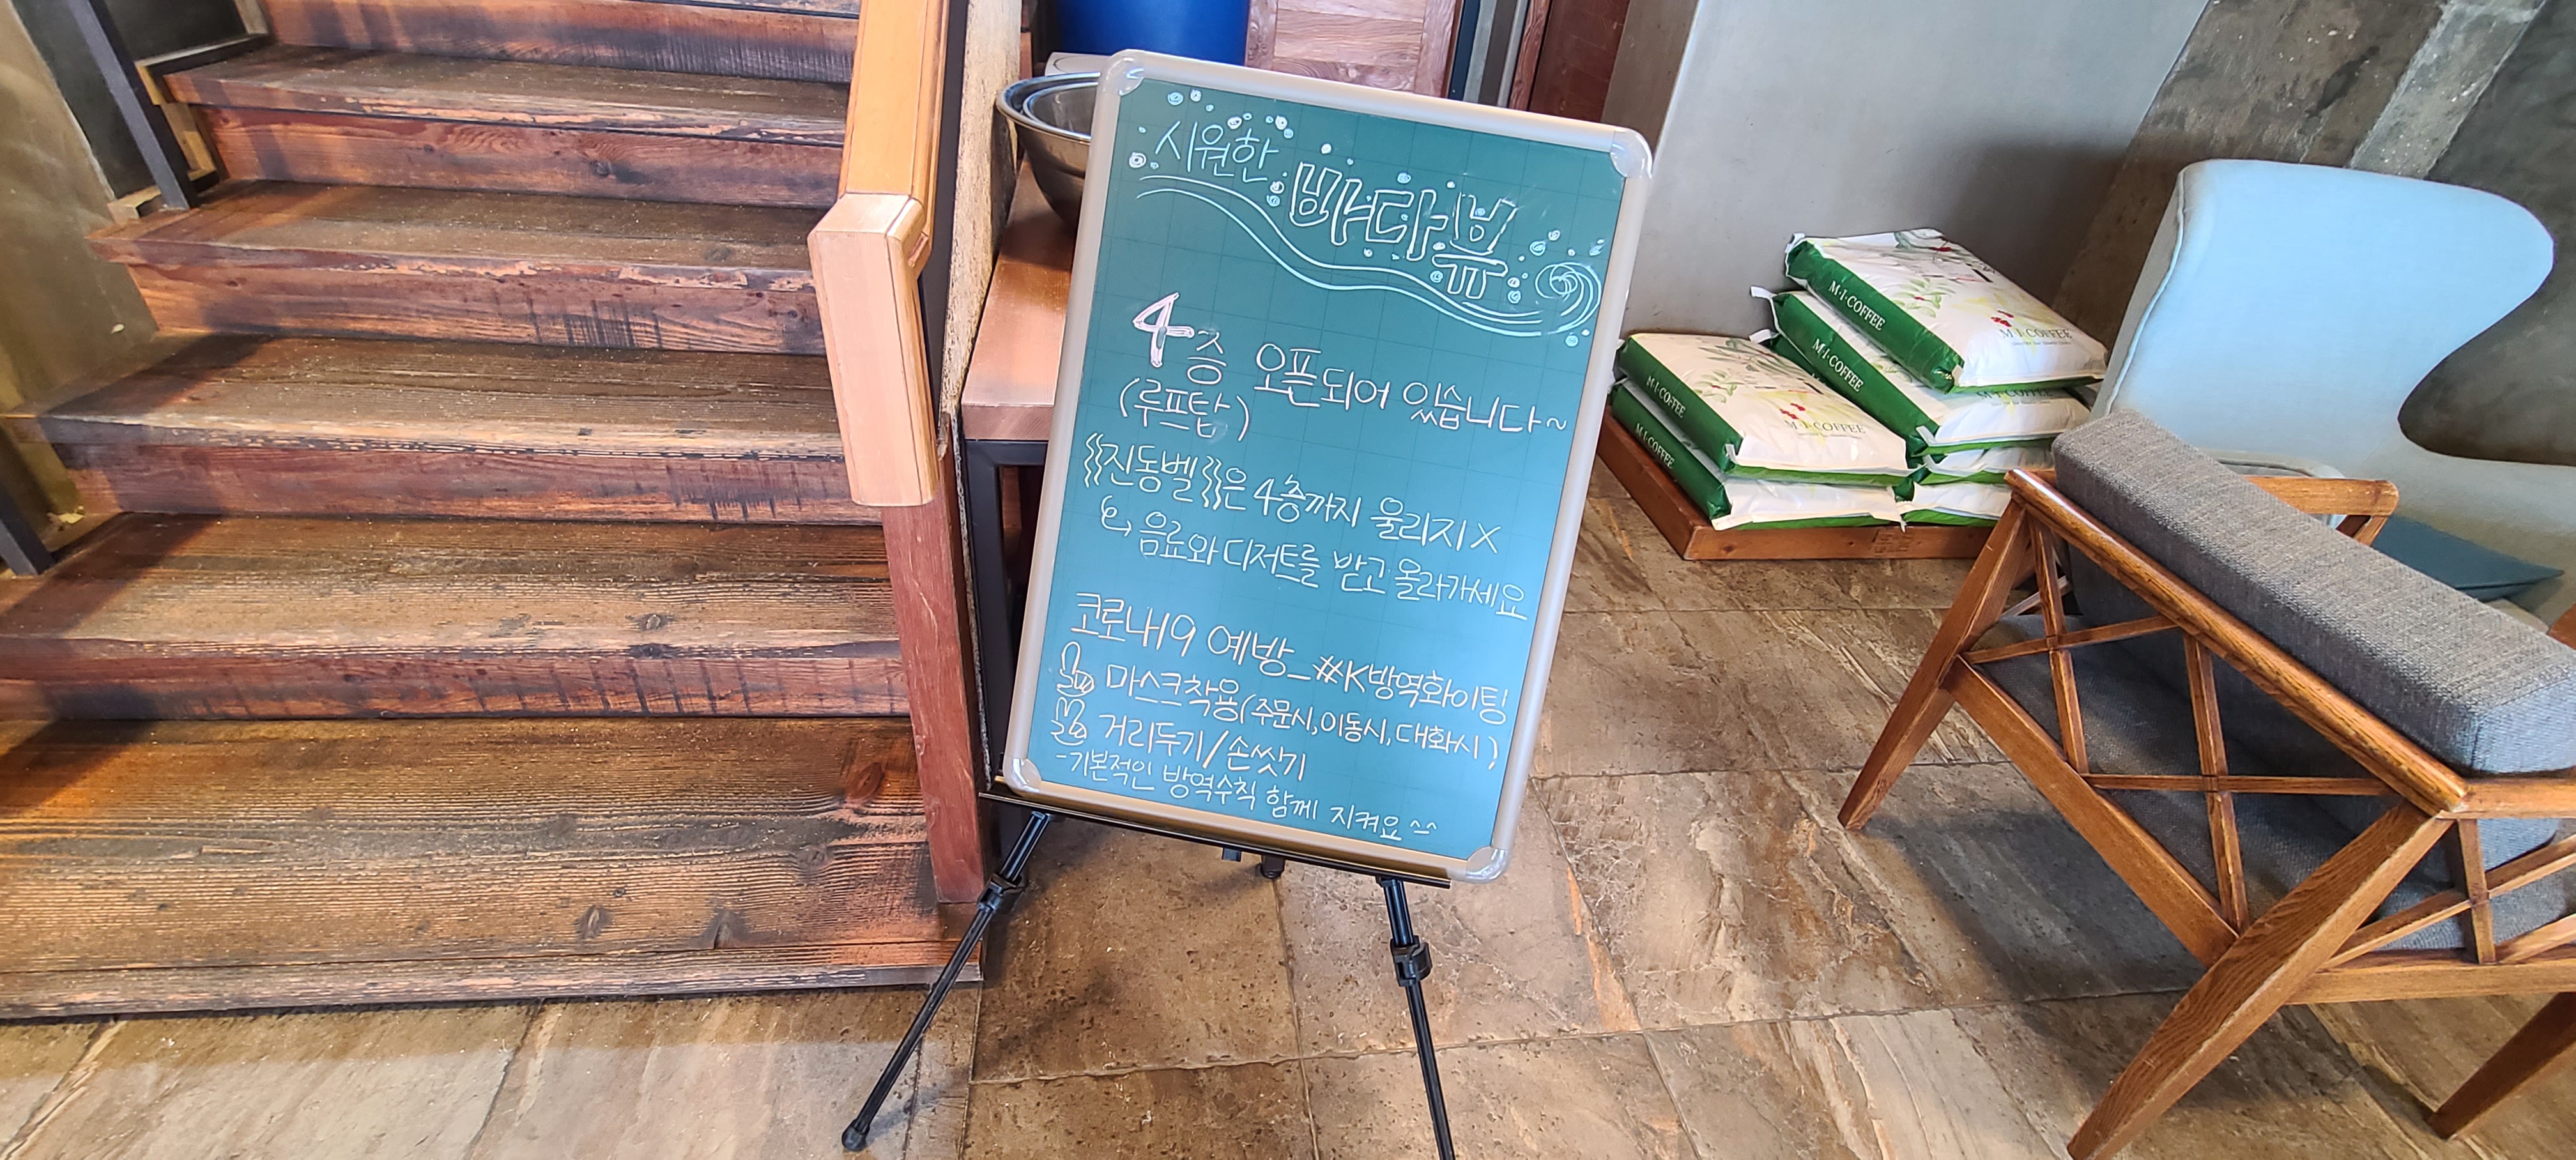 시원한 바다뷰
4층 오픈되어 있습니다~
(루프탑)
진동벨은 4층까지 울리지X
음료와 디저트를 받고 올라가세요
코로나19 예방_#K방역화이팅
마스크착용(주문시,이동시,대화시)
거리두기/손씻기
-기본적인 방역수칙 함께 지켜요^^
M·I·COFFEE
M·I·COFFEE
M·I·COFFEE
M·I·COFFEE
M·I·COFFEE
M·I·COFFEE
M·I·COFFEE